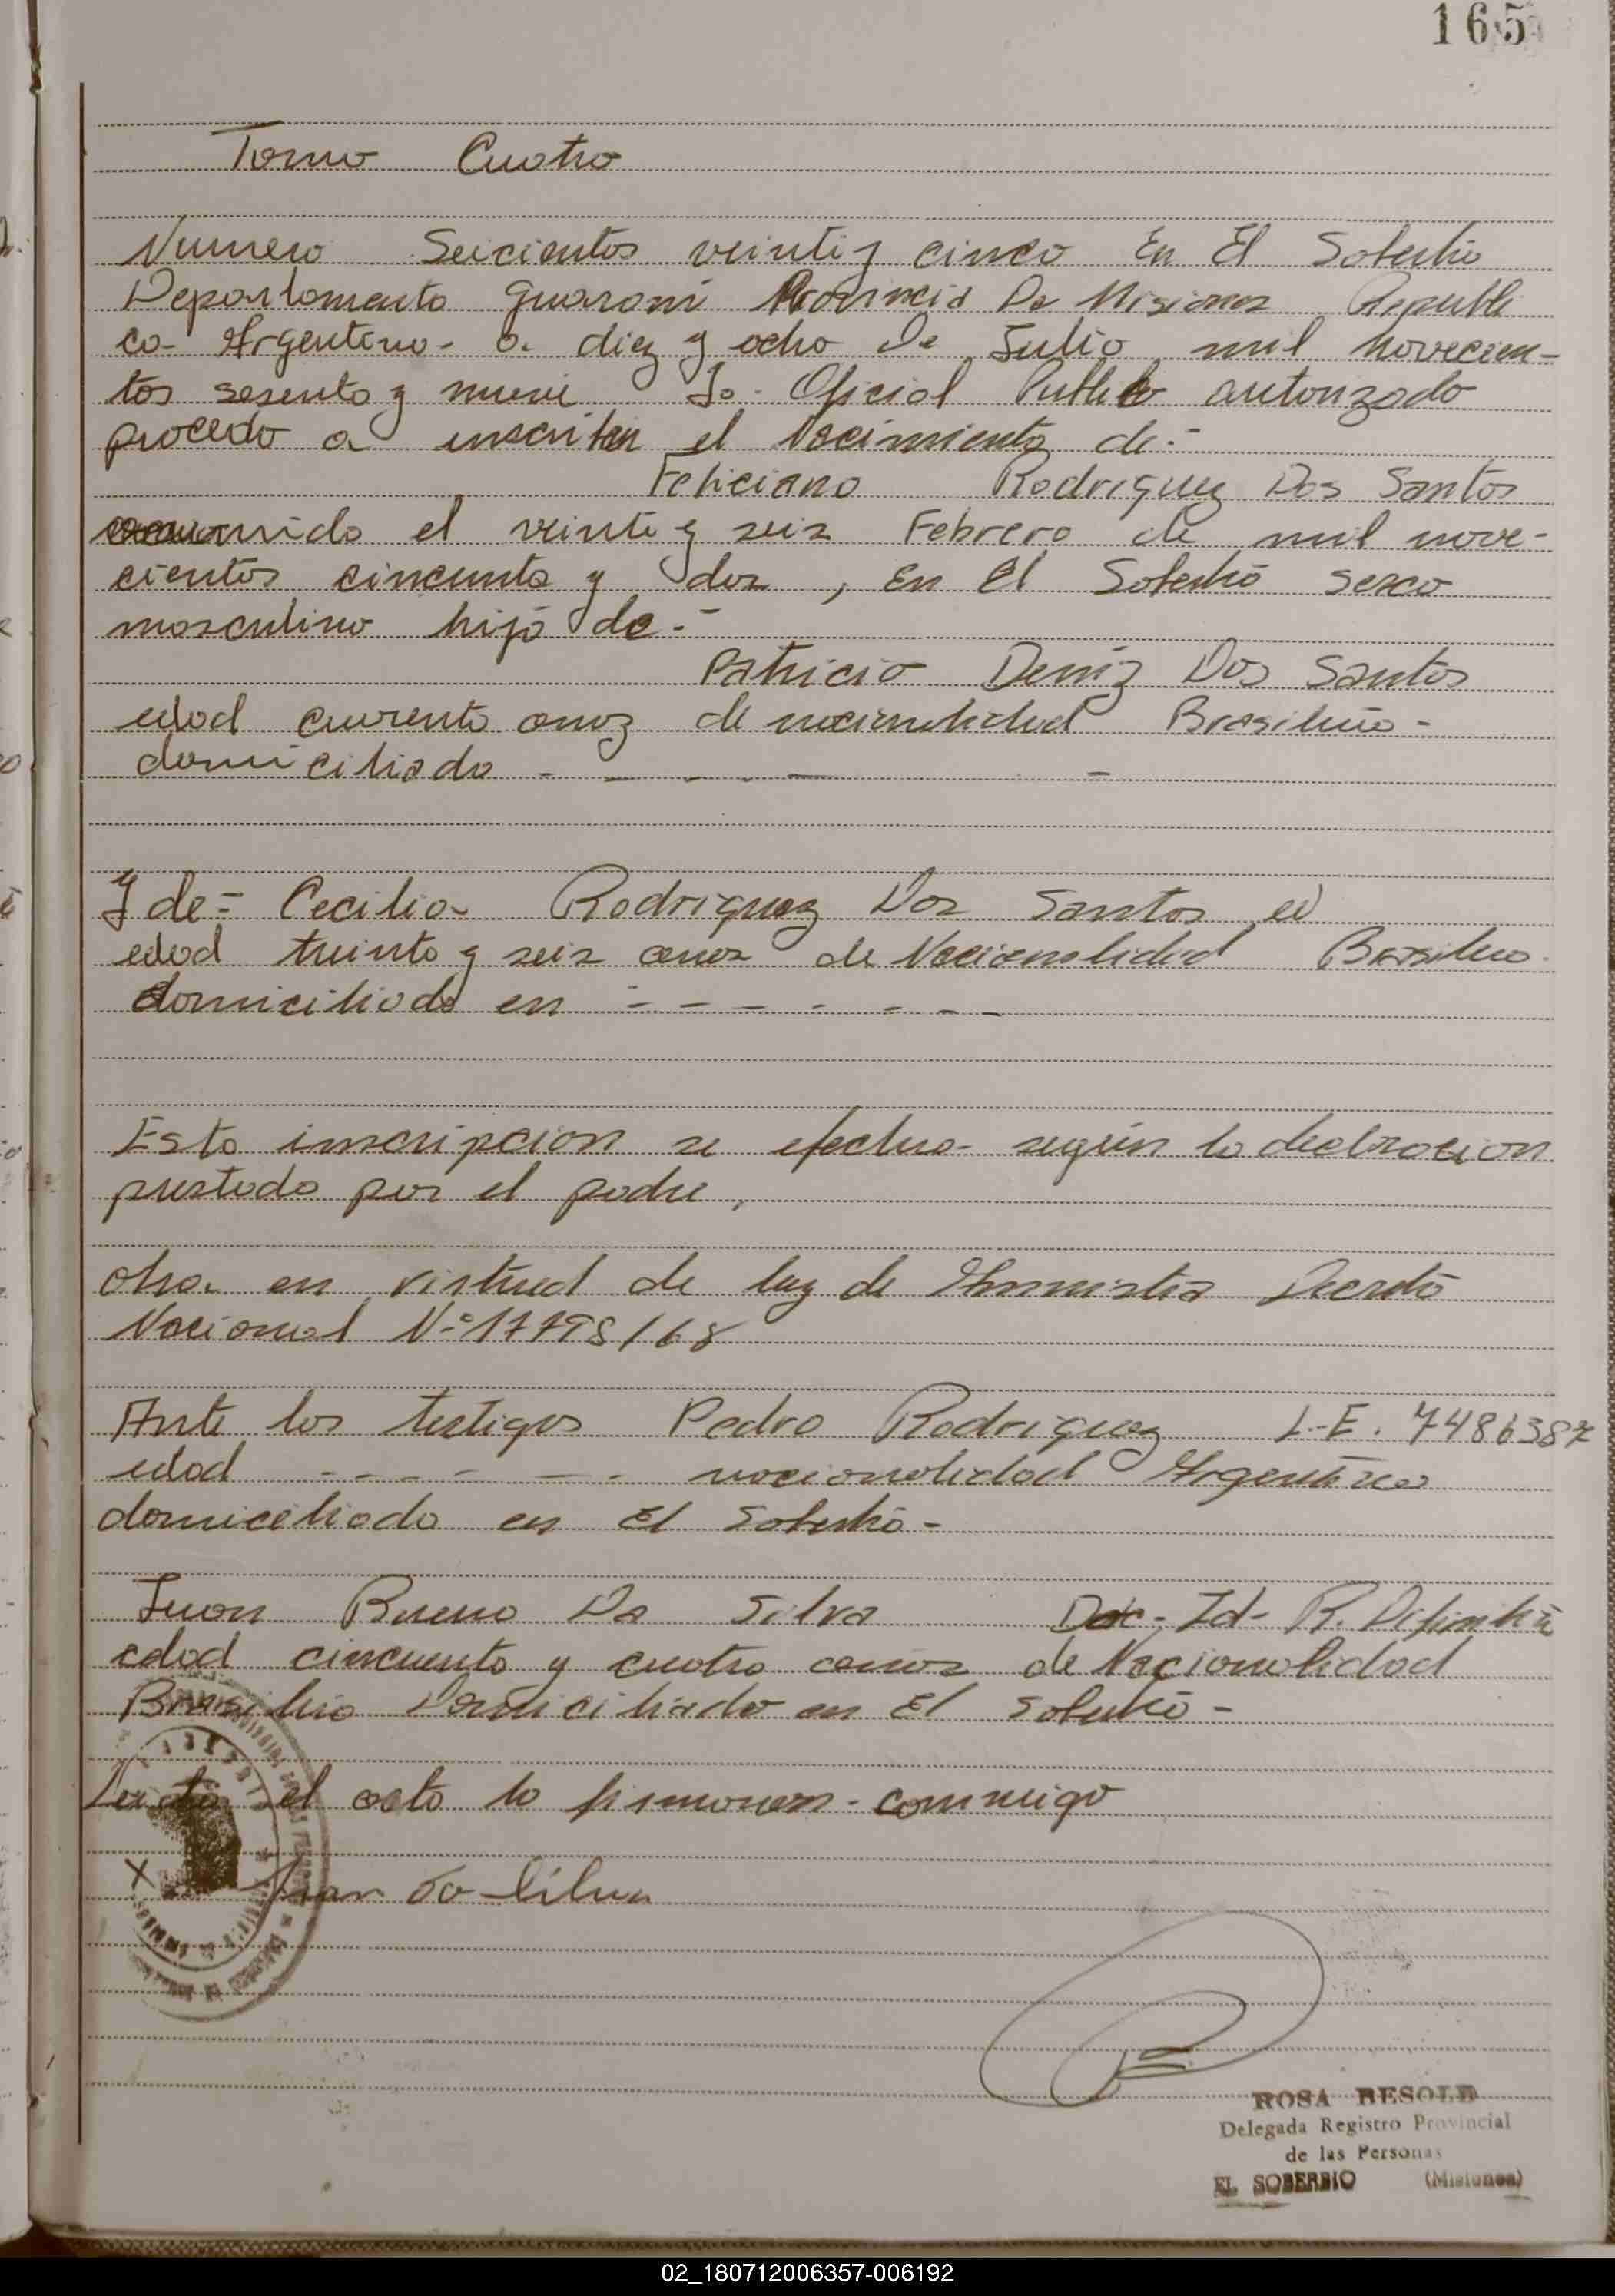 165
Tomo Cuatro
Numero Seicientos veinti y cinco En El Soberbio
Departamento Guarani Provincia De Misiones Republi
ca Argentina - a diez y ocho De Julio mil novecien-
tos sesenta y nueve Yo Oficial Publico autorizado
procedo a inscribir el Nacimiento de:-
Feliciano Rodriguez Dos Santos
el veinte y seis Febrero de mil nove-
cientos cincuenta y dos, En El Soberbio sexo
masculino hijo de.-
Patricio Deniz Dos Santos
edad cuarenta anoz de nacionalidad Brasileño -
domiciliado - - - - -
Y de = Cecilia Rodriguez Dos Santos
edad treinta y seis anos de Nacionalidad Brasilera
domiciliado en - - - - - - -
Esta inscripcion se efectua segun la declaracion
prestada por el padre,
en virtud de ley de Amnistia Decreto
Nacional N° 17798/68
Ante los testigos Pedro Rodriguez L.E. 7486387
edad - - - - - - nacionalidad Argentina
domiciliado en El Soberbio -
Juan Bueno Da Silva Doc. Id- R.
edad cincuenta y cuatro anos de Nacionalidad
Brasileño Domiciliado en El Soberbio -
el acta la firmaron conmigo
X Juan da Silva
ROSA BESOLD
Delegada Registro Provincial
de las Personas
EL SOBERBIO (Misiones)
02_180712006357-006192